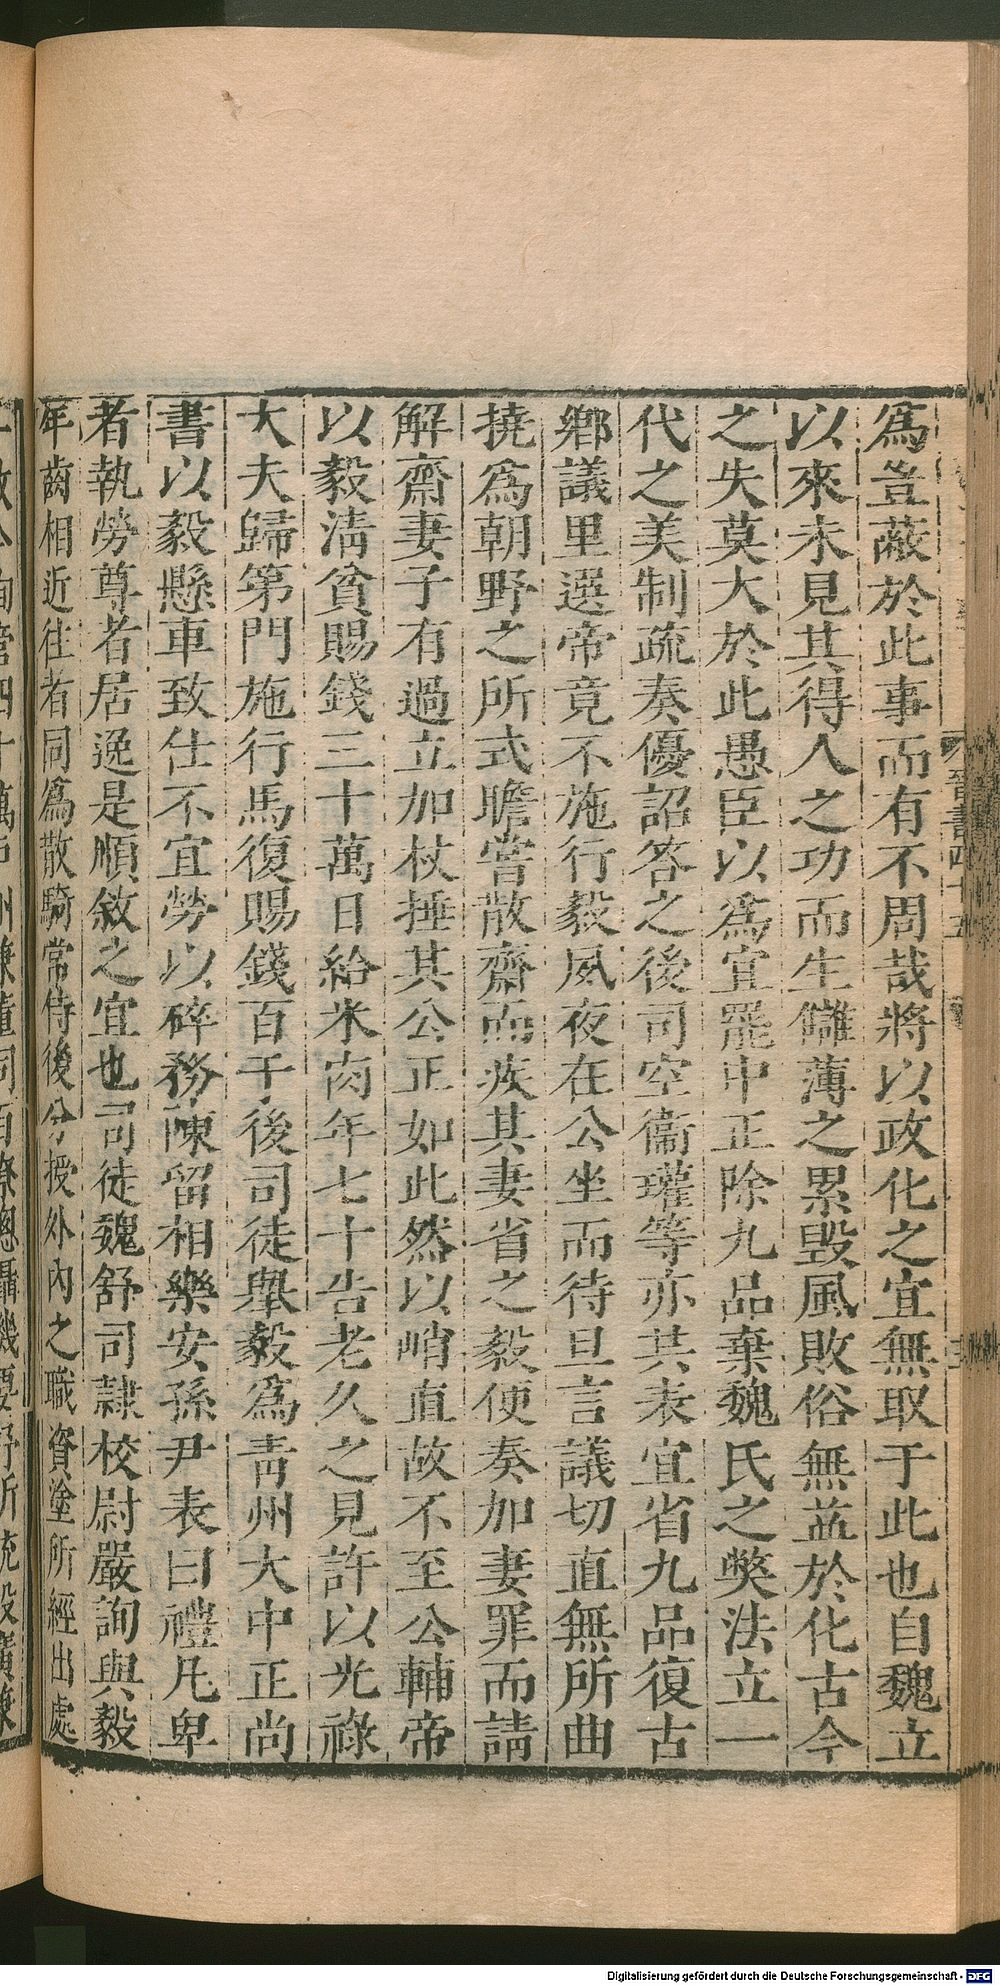 爲豈蔽於此事而有不周哉將以政化之宜無取于此也自魏立
以來未見其得人之功而生讎薄之累毀風敗俗無益於化古今
之失莫大於此愚臣以爲宜罷中正除九品棄魏氏之獘法立一
代之美制疏奏優詔答之後司空衞瓘等亦共表宜省九品復古
鄕議里選帝竟不施行毅夙夜在公坐而待旦言議切直無所曲
撓爲朝野之所式瞻嘗散齋而疾其妻省之毅便奏加妻罪而請
解齋妻子有過立加杖捶其公正如此然以峭直故不至公輔帝
以毅淸貧賜錢三十萬日給米肉年七十告老久之見許以光祿
大夫歸第門施行馬復賜錢百千後司徒舉毅爲靑州大中正尚
書以毅懸車致仕不宜勞以碎務陳留相樂安孫尹表曰禮凡卑
者執勞尊者居逸是順敘之宜也司徒魏舒司隷校尉嚴詢與毅
年齒相近往者同爲散騎常侍後分授外內之職資塗所經出處
晉書四十五
Digitalisierung gefördert durch die Deutsche Forschungsgemeinschaft - DFG